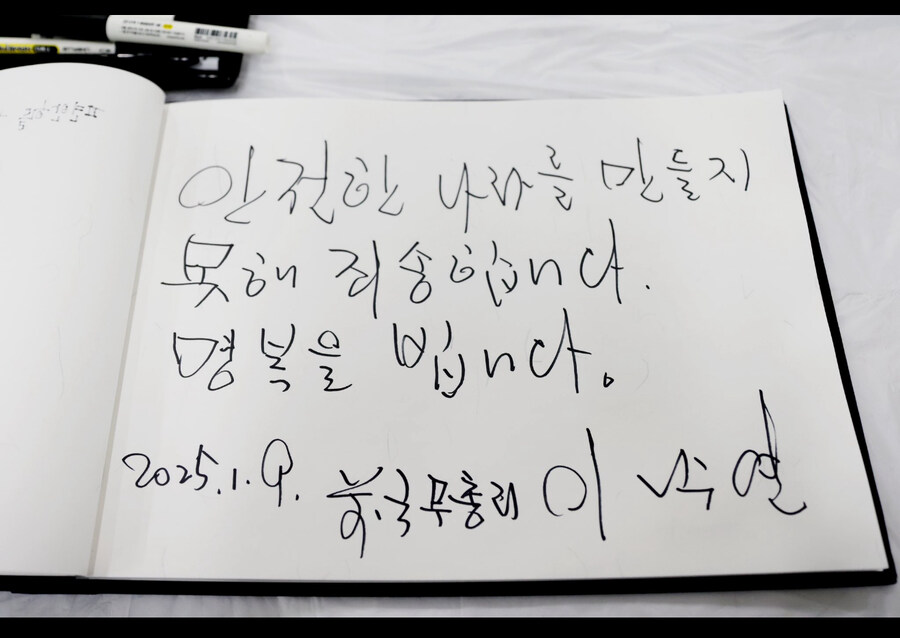 안전한 나라를 만들지
못해 죄송합니다.
명복을 빕니다.
2025.1.9. 前국무총리 이 낙 연